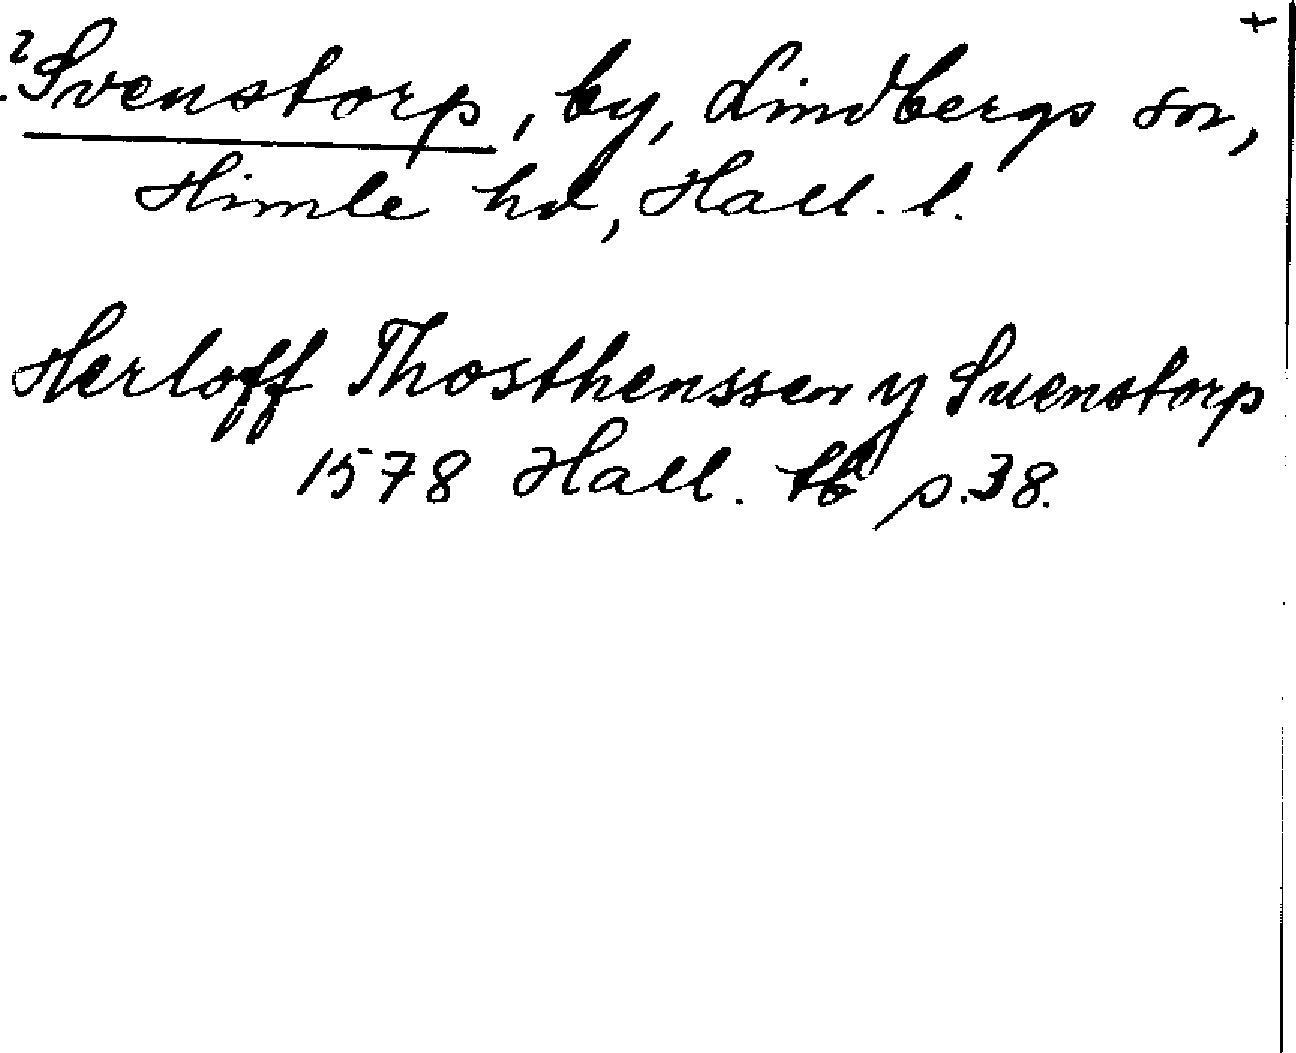 +
? Svenstorp, by, Lindbergs sn,
Himle hd, Hall. l.
Herloff Thosthenssen y Suenstorp
1578 Hall. tb p. 38.